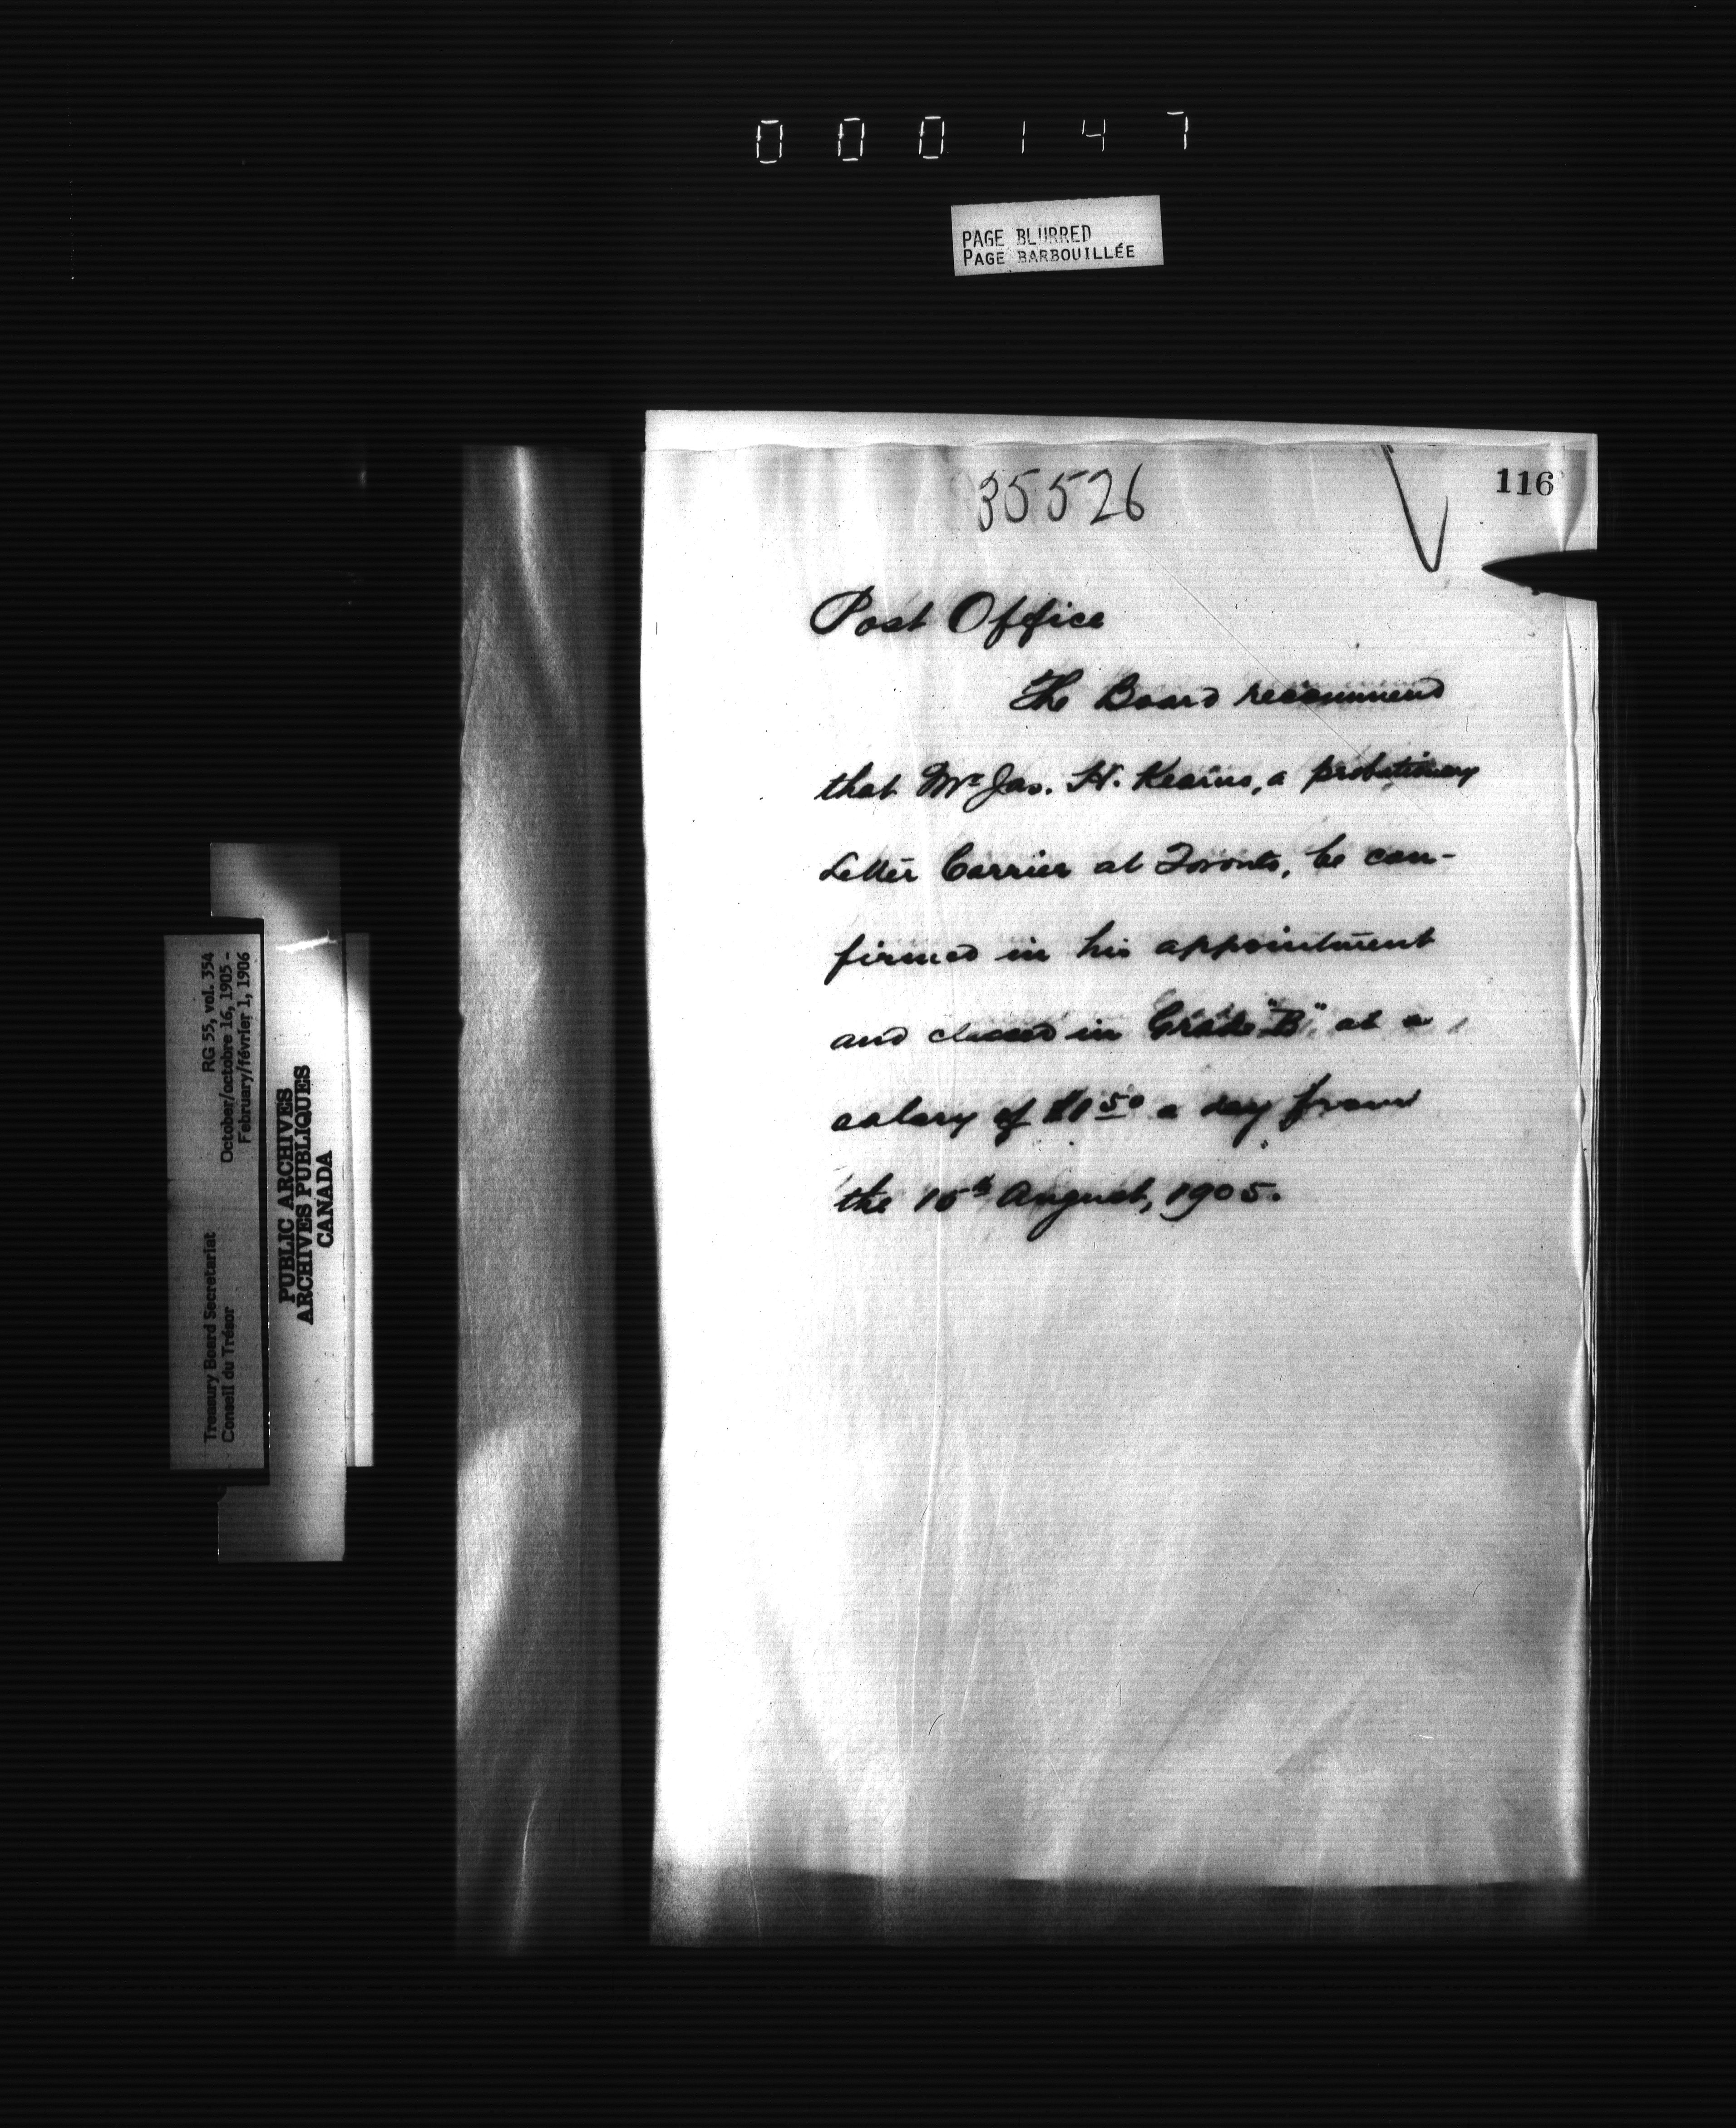 000147
PAGE BLURRED
PAGE BARBOUILLÉE
35526
116
Post Office
The Board recommend
that Mr Jas. H. Kearns, a probationary
Letter Carrier at Toronto, be con-
firmed in his appointment
and classed in Grade "B" at a
salary of $1 50 a day from
the 15th August, 1905.
Treasury Board Secretariat RG 55, vol. 354
Conseil du Trésor October/octobre 16, 1905 -
February/février 1, 1906
PUBLIC ARCHIVES
ARCHIVES PUBLIQUES
CANADA